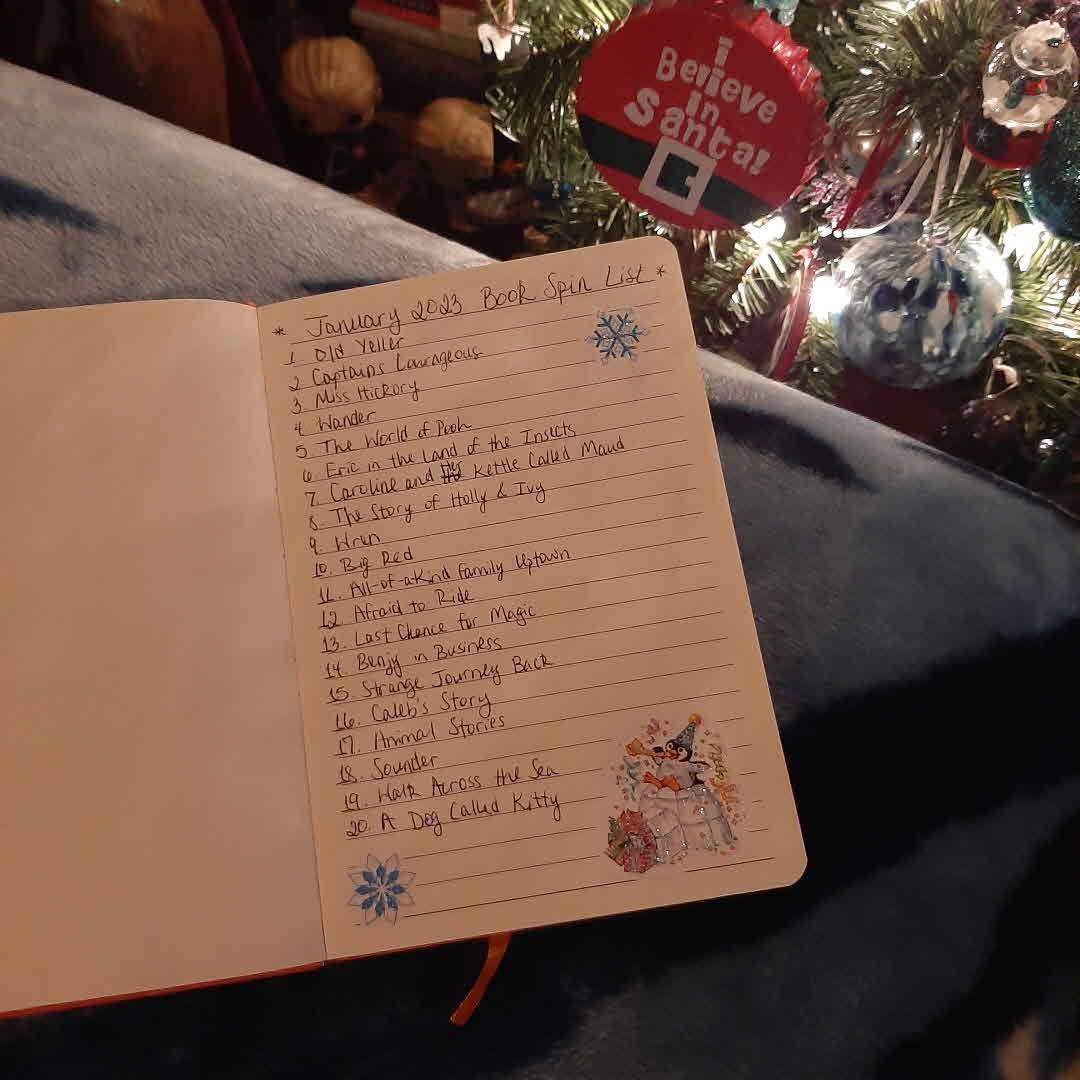 I
Believe
in
Santa!
* January 2023 Book Spin List *
1. Old Yeller
2. Captains Courageous
3. Miss Hickory
4. Wander
5. The World of Pooh
6. Eric in the Land of the Insects
7. Caroline and Her Kettle Called Maud
8. The Story of Holly & Ivy
9. Wren
10. Big Red
11. All-of-a-Kind Family Uptown
12. Afraid to Ride
13. Last Chance for Magic
14. Benjy in Business
15. Strange Journey Back
16. Caleb's Story
17. Animal Stories
18. Sounder
19. Walk Across the Sea
20. A Dog Called Kitty